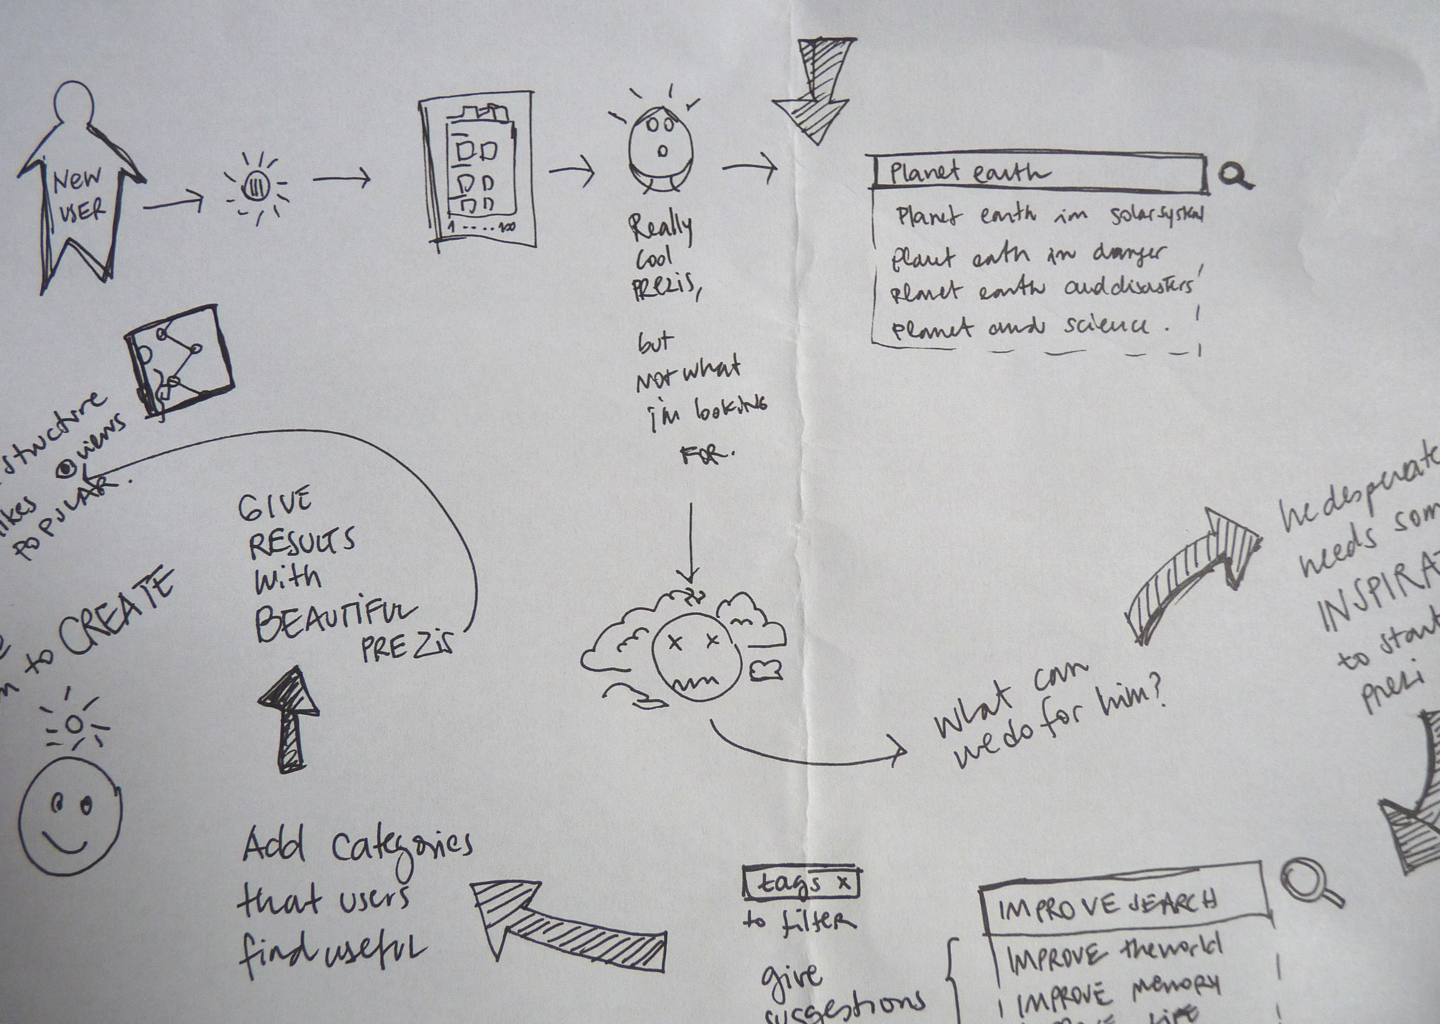 NEW
USER
1 ..... 100
Really
cool
PREZIS,
but
not what
i'm looking
FOR.
Planet earth
Planet earth in solarsystem
planet eath in danger
planet earth and disasters
planet and science.
structure
likes views
POPULAR.
to CREATE
GIVE
RESULTS
with
BEAUTIFUL
PREZIS
What can
we do for him?
he desperate
needs som
INSPIRAT
to start
prezi
Add categories
that users
find useful
tags x
to filter
give
suggestions
IMPROVE SEARCH
IMPROVE the world
IMPROVE memory